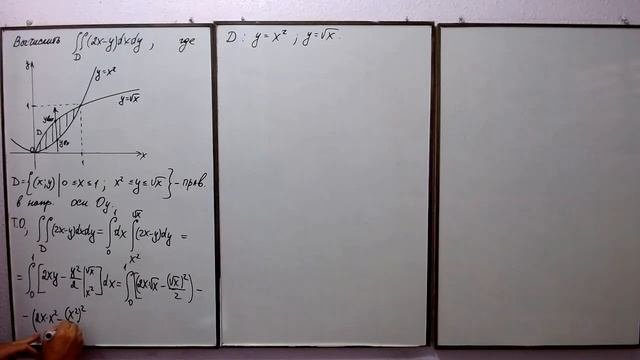 Вычислить ∬(2x-y)dxdy, где
D
D: y=x²; y=√x.
y
y=x²
y=√x
1
D
0
1
x
D={(x;y)|0≤x≤1; x²≤y≤√x}- прав.
в напр. оси Oy.
Т.О., ∬(2x-y)dxdy=∫₀¹dx∫(2x-y)dy =
D x² √x
=∫₀¹[2xy-y²/2|x² √x]dx=∫₀¹[(2x·√x-(√x)²/2)-
-(2x·x²-(x²)²